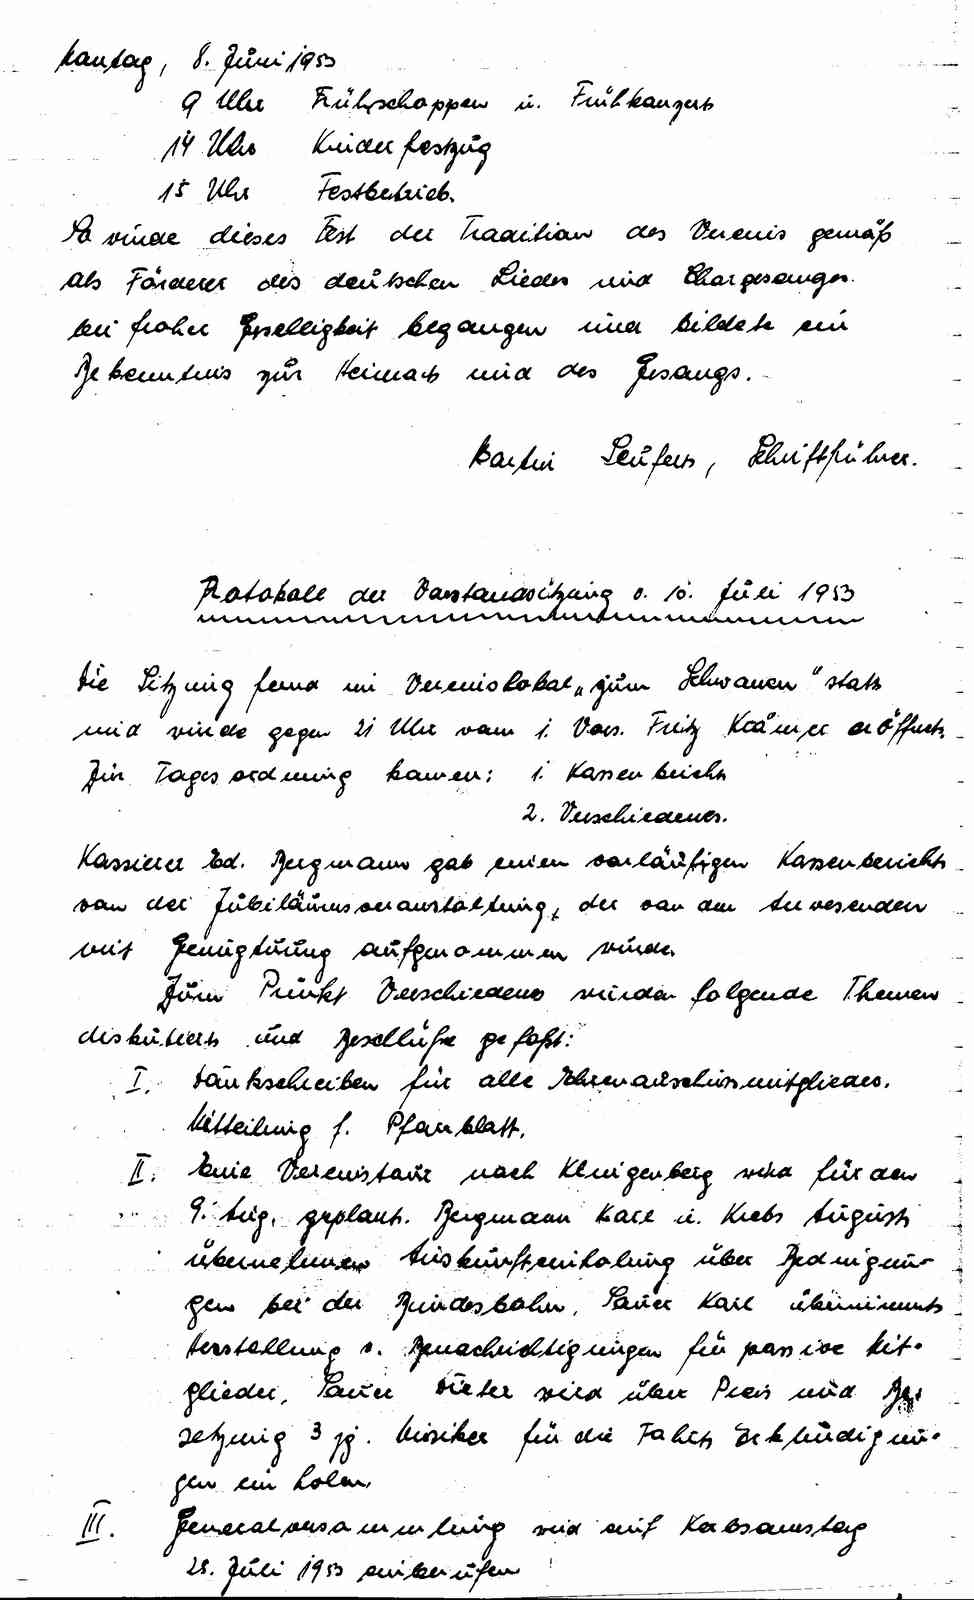 Montag, 8. Juni 1953
9 Uhr Frühschoppen u. Frühkonzert
14 Uhr Kinderfestzug
15 Uhr Festbetrieb.
So wurde dieses Fest der Tradition des Vereins gemäß
als Förderer des deutschen Liedes und Chorgesanges
bei froher Geselligkeit begangen und bildete ein
Bekenntnis zur Heimat und des Gesangs.
Martin Seufert, Schriftführer.
Protokoll der Vorstandsitzung v. 10. Juli 1953
Die Sitzung fand im Vereinslokal „zum Schwanen" statt
und wurde gegen 21 Uhr vom 1. Vors. Fritz Krämer eröffnet.
Zur Tagesordnung kamen: 1. Kassenbericht
2. Verschiedenes.
Kassierer Ed. Bergmann gab einen vorläufigen Kassenbericht
von der Jubiläumsveranstaltung, der von den Anwesenden
mit Genugtuung aufgenommen wurde.
Zum Punkt Verschiedenes wurden folgende Themen
diskutiert und Beschlüße gefaßt:
I. Dankschreiben für alle Ehrenauschussmitglieder.
Mitteilung f. Pfarrblatt.
II. Eine Vereinstour nach Klingenberg wird für den
9. Aug. geplant. Bergmann Karl u. Krebs August
übernehmen Auskunfteinholung über Bedingun-
gen bei der Bundesbahn. Sauer Karl übernimmt
Herstellung v. Benachrichtigungen für passive Mit-
glieder, Sauer Dieter wird über Preis und Be-
setzung 3 jg. Musiker für die Fahrt Erkundigun-
gen ein holen.
III. Generalversammlung wird auf Kerbsamstag
25. Juli 1953 einberufen